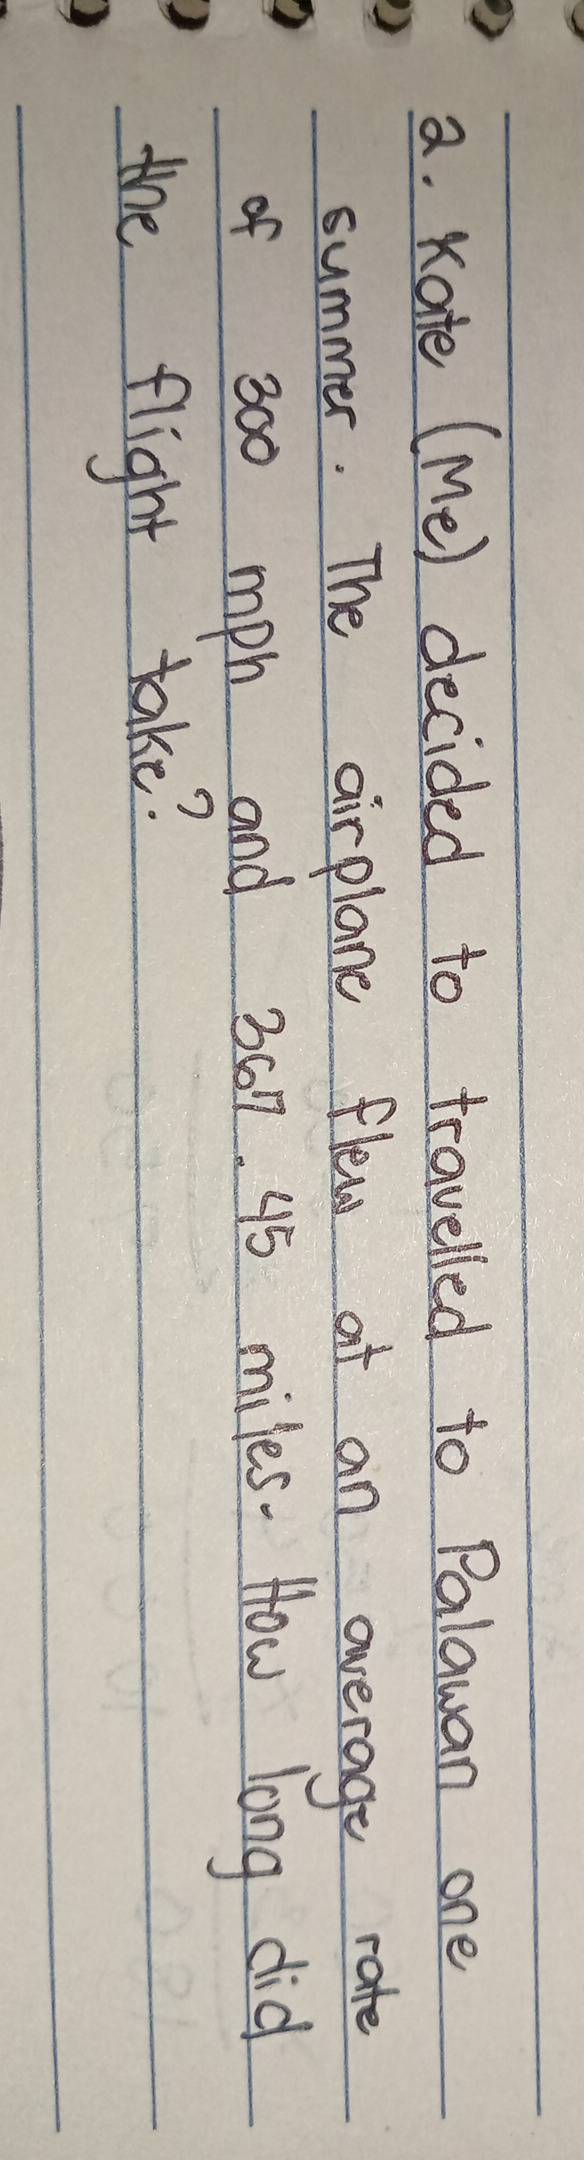 2. Kate (Me) decided to travelled to Palawan one
summer. The airplane flew at an average rate
of 300 mph and 367.45 miles. How long did
the flight take?